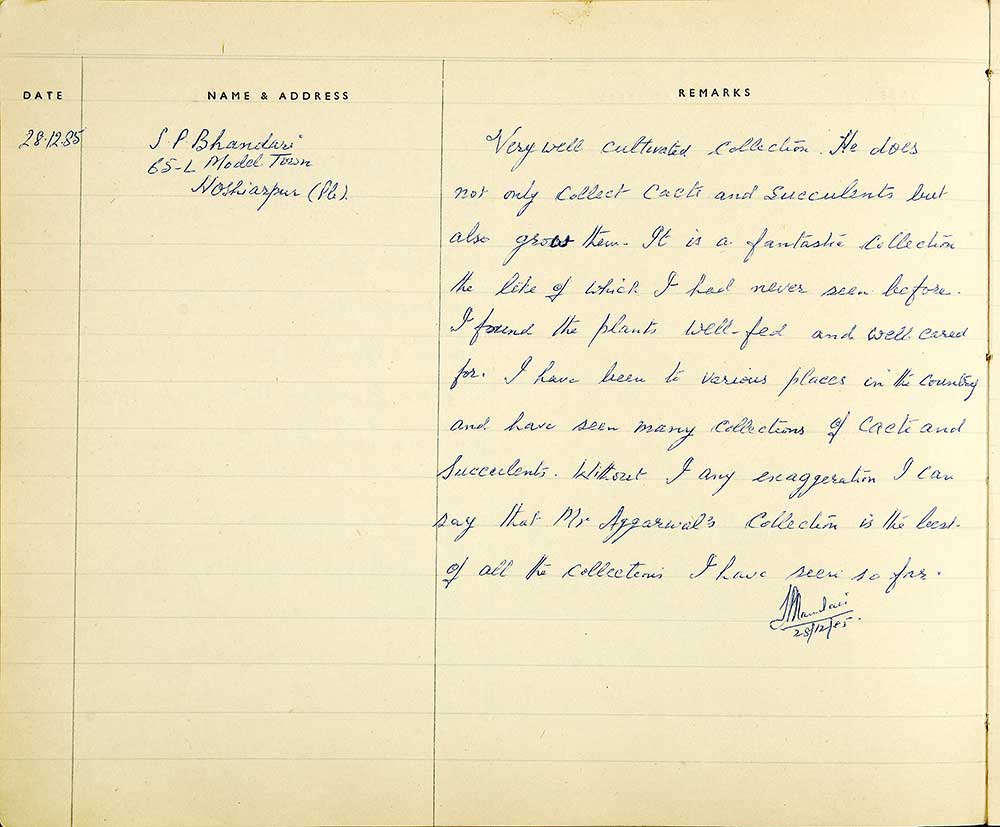 DATE
NAME & ADDRESS
REMARKS
28.12.85
S P Bhandari
65-L Model Town
Hoshiarpur (Pb).
Very well cultivated collection. He does
not only collect cacti and succulents but
also grow them. It is a fantastic collection
the like of which I had never seen before.
I found the plants well-fed and well cared
for. I have been to various places in the country
and have seen many collections of cacti and
succulents. Without I any exaggeration I can
say that Mr Aggarwal's collection is the best
of all the collections I have seen so far.
28/12/85.